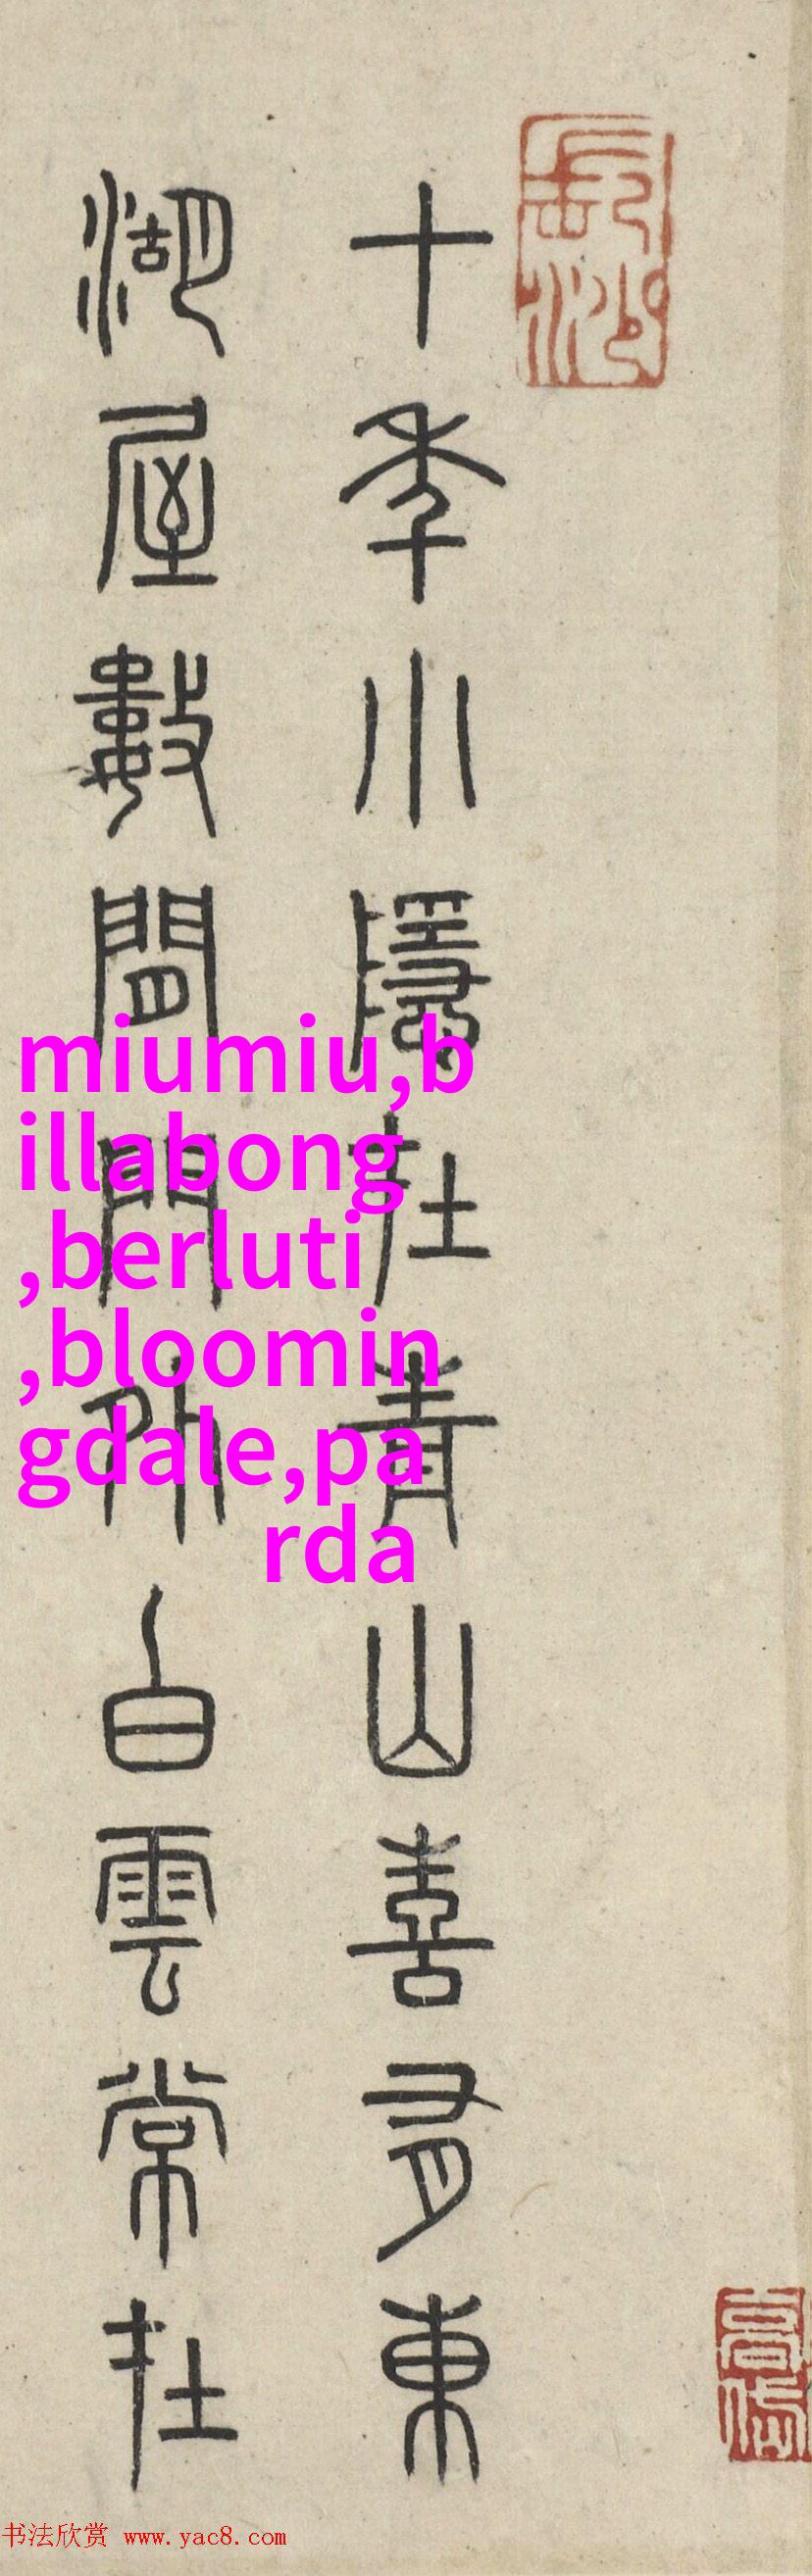 十年小隱在青山喜有東
湖屋數間門外白雲常在
miumiu,b
illabong
,berluti
,bloomin
gdale,pa
rda
书法欣赏 www.yac8.com